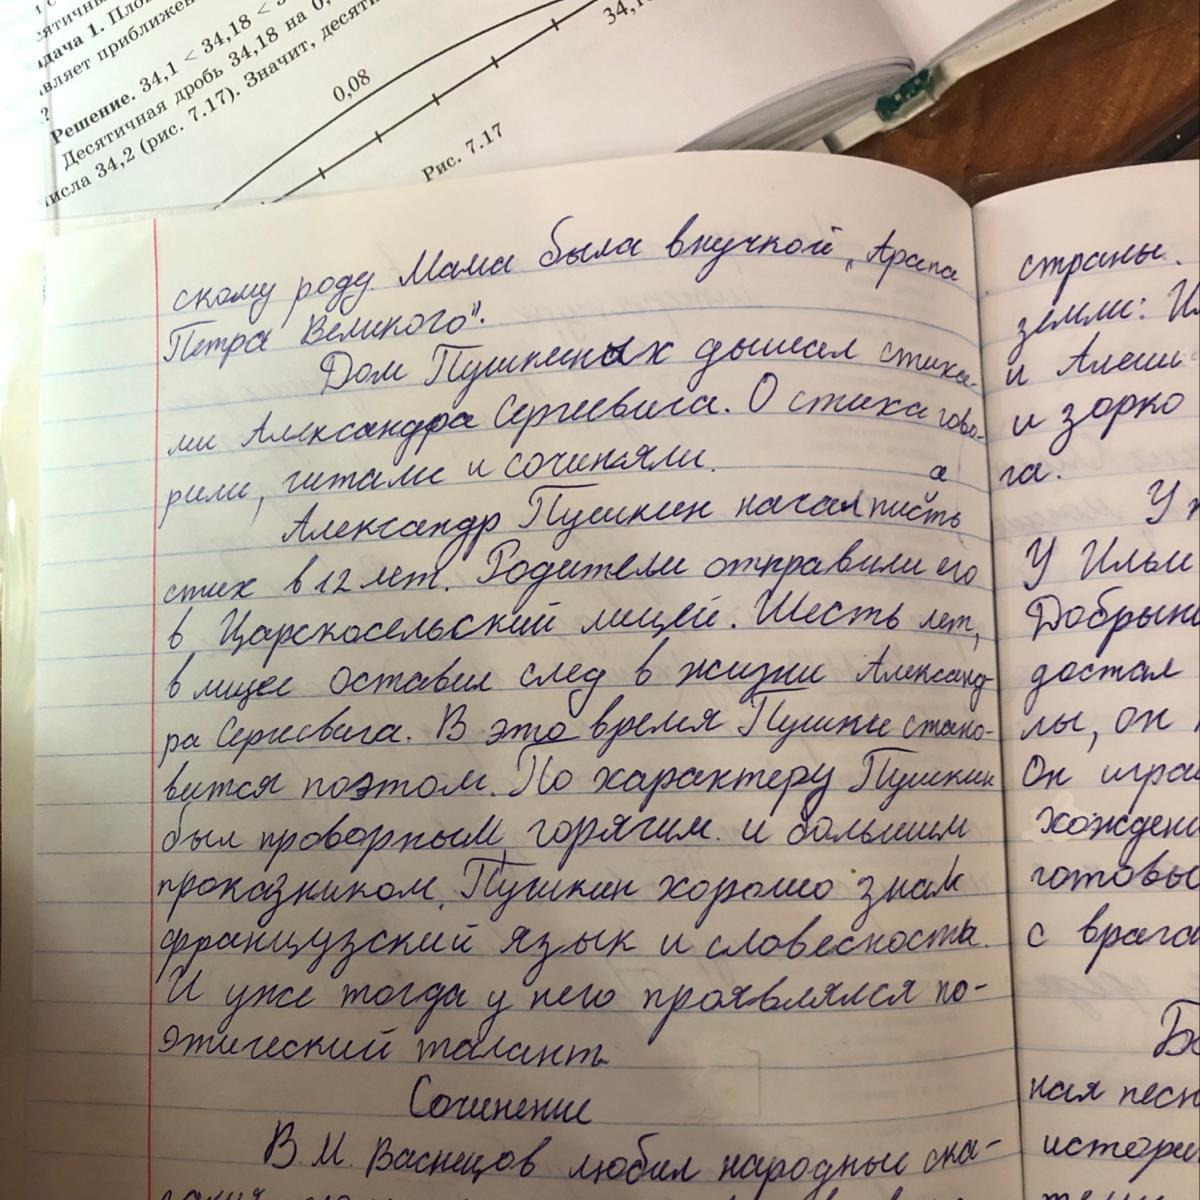 Задача 1.
Решение. 34,1 < 34,18 <
Десятичная дробь 34,18 на 0,
числа 34,2 (рис. 7.17). Значит,
0,08
Рис. 7.17
скому роду Мама была внучкой „Арапа
Петра Великого".
Дом Пушкиных дышал стиха-
ми Александра Сергеевича. О стиха гово-
рили, читали и сочиняли.
а
Александр Пушкин начал писть
стих в 12 лет. Родители отправили его
в Царскосельский лицей. Шесть лет,
в лицее оставил след в жизни Александ-
ра Сергеевича. В это время Пушкин стано-
вится поэтом. По характеру Пушкин
был проворным, горячим. и большим
проказником. Пушкин хорошо знал
французский язык и словесность.
И уже тогда у него проявлялся по-
этический талант.
Сочинение
В. М. Васнецов любил народные ска-
страны.
земли:
и Алеши
и зорко
га.
У Ильи
Добрыни
достал
лы, он
Он играл
готовы
с врага
ная песн
истори